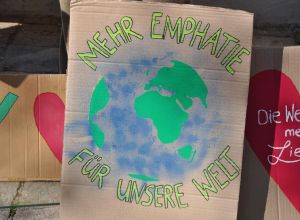 MEHR EMPHATIE
FÜR UNSERE WELT
Die We
me
Lie